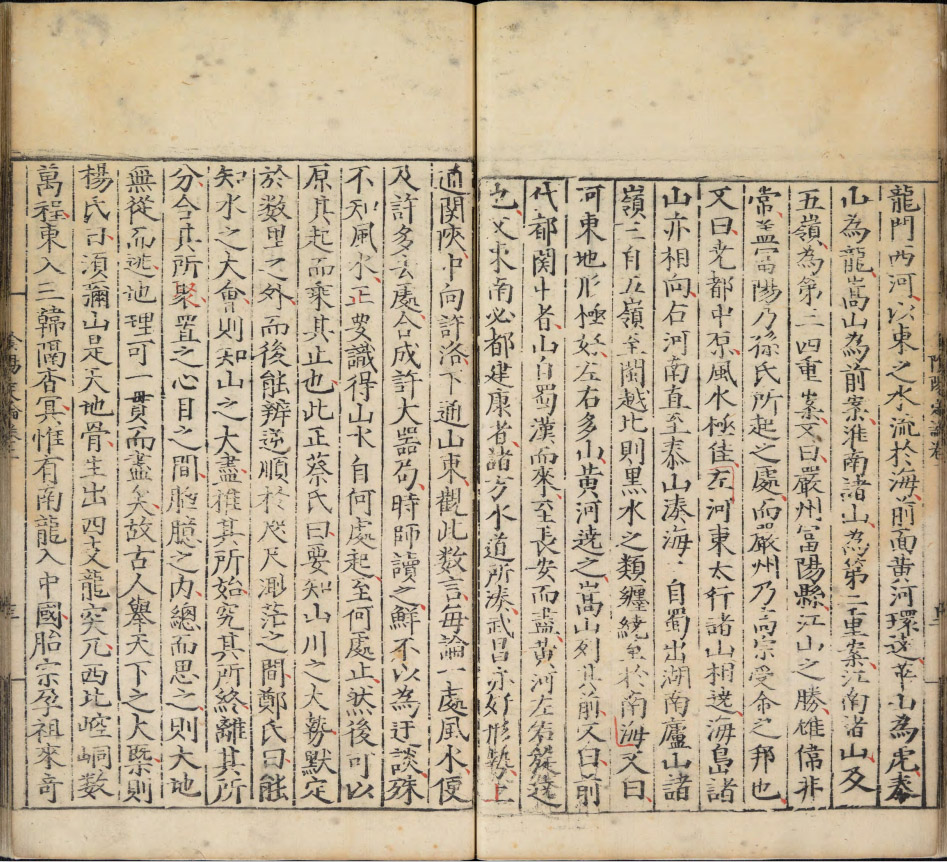 龍門西河以東之水流於海前面黃河環遶華山為虎泰
山為龍嵩山為前案淮南諸山為第二重案江南諸山及
五嶺為第三四重案又曰嚴州富陽縣江山之勝雄偉非
常盖富陽乃孫氏所起之處而嚴州乃高宗受命之邦也
又曰堯都中原風水極佳左河東太行諸山相遶海島諸
山亦相向右河南直至泰山湊海自蜀出湖南廬山諸
嶺三自五嶺至閩越北則黑水之類纏繞至於南海又曰
河東地形極好左右多山黃河遶之嵩山列其前又曰前
代都関中者山自蜀漢而來至長安而盡黃河左右旋遶
也又東南必都建康者諸方水道所湊武昌亦好形勢上
通関陝中向許洛下通山東觀此數言每論一處風水便
及許多去處合成許大器局時師讀之鮮不以為迂談殊
不知風水正要識得山水自何處起至何處止然後可以
原其起而乘其止也此正蔡氏曰要知山川之大勢默定
於数里之外而後能辨逆順於咫尺渺茫之間鄭氏曰能
知水之大會則知山之大盡推其所始究其所終離其所
分合其所聚置之心目之間胷臆之内總而思之則大地
無從而逃地理可一貫而盡矣故古人舉天下之大槩則
楊氏曰湏彌山是天地骨生出四支龍突兀西北崆峒数
萬程東入三韓隔杳冥惟有南龍入中國胎宗孕祖來奇